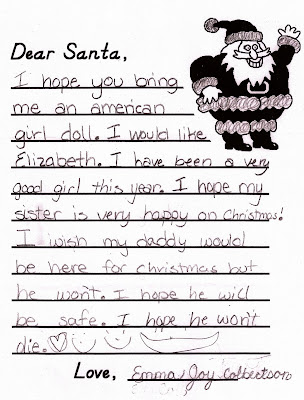 Dear Santa,
I hope you bring
me an american
girl doll. I would like
Elizabeth. I have been a very
good girl this year. I hope my
sister is very happy on Christmas!
I wish my daddy would
be here for christmas but
he won't. I hope he will
be safe. I hope he won't
die.
Love, Emma Joy Colbertson